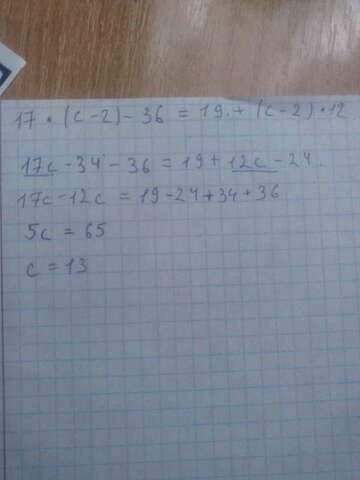 17 • (c-2) - 36 = 19 + (c-2) • 12
17c - 34 - 36 = 19 + 12c - 24.
17c - 12c = 19 - 24 + 34 + 36
5c = 65
c = 13